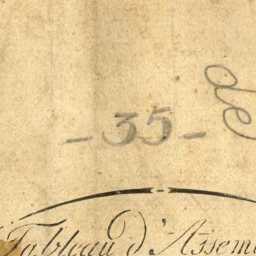 de
- 35 -
Tableau d'Assem